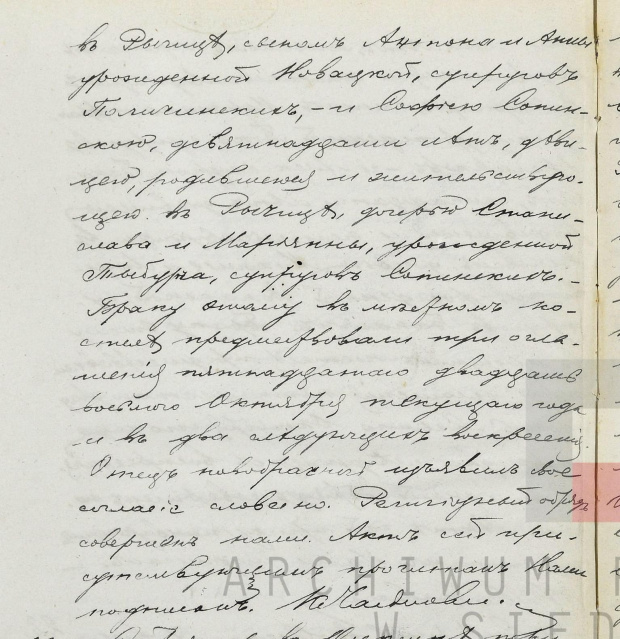 въ Рычицѣ, сыномъ Антона и Анны
урожденной Новацкой, супруговъ
и Софіею Сопин-
скою, девятнадцати лѣтъ, дѣви-
цею, родившеюся и жительствую-
щею въ Рычицѣ, дочерью Стани-
слава и Маріянны, урожденной
супруговъ Сопинскихъ. -
Браку этому въ мѣстномъ ко-
стелѣ предшествовали три огла-
шенія пятнадцатаго двадцать
восьмого Октября текущаго года
и въ два слѣдующихъ воскресенія.
Отецъ новобрачной изъявилъ свое
согласіе словесно. Религіозный обрядъ
совершенъ нами. Актъ сей при-
сутствующимъ прочитанъ Нами
подписанъ.
ARCHIWUM
W SIED